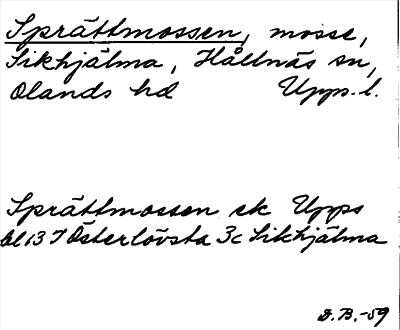 Sprättmossen, mosse,
Sikhjälma, Hållnäs sn,
Olands hd Upps. l.
Sprättmossen ek Upps
bl 13 I Österlövsta 3c Sikhjälma
B.-59